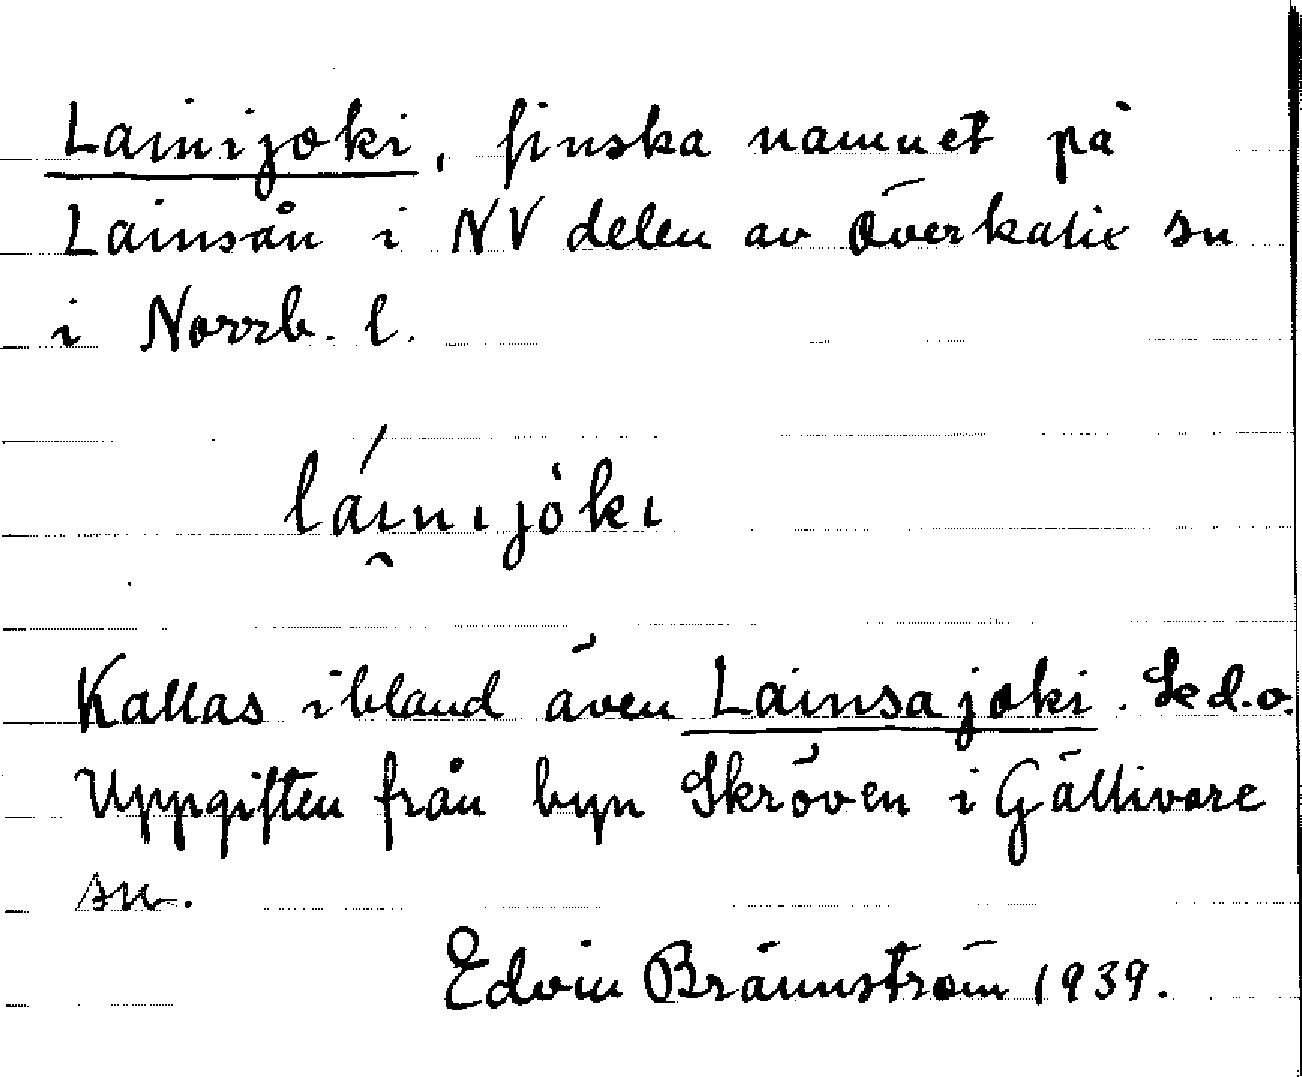 Lainijoki, finska namnet på
Lainsån i NV delen av Överkalix sn
i Norrb. l.
lái̯nijòki
Kallas ibland även Lainsajoki. Se d.o.
Uppgiften från byn Skröven i Gällivare
sn.
Edvin Brännström 1939.